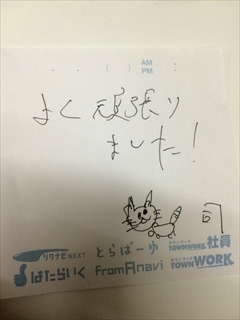 . . ( ) AM
PM :
よく頑張り
ました!
司
リクナビNEXT とらばーゆ タウンワーク TOWNWORK 社員
はたらいく fromA navi タウンワーク TOWNWORK